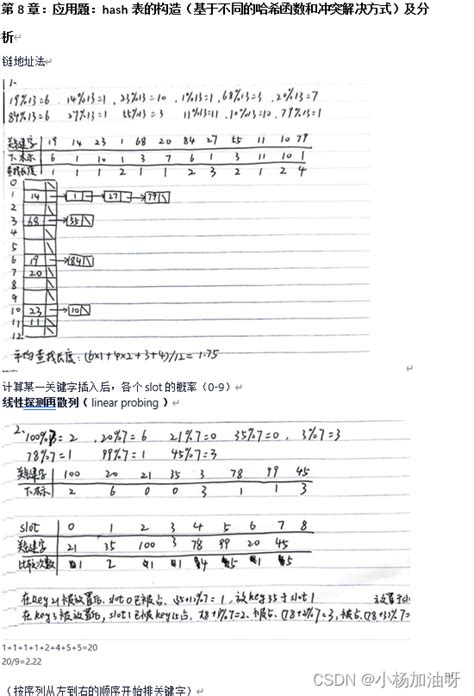 第 8 章：应用题：hash 表的构造（基于不同的哈希函数和冲突解决方式）及分
析
链地址法
1.
19%13=6 . 14%13=1 . 23%13=10 . 1%13=1 . 68%13=3 . 20%13=7
84%13=6 27%13=1 55%13=3 11%13=11 . 10%13=10 . 79%13=1
关键字 19 14 23 1 68 20 84 27 55 11 10 79
下标 6 1 10 1 3 7 6 1 3 11 10 1
查找长度 1 1 1 2 1 1 2 3 2 1 2 4
0
1 14 1 27 79
2
3 68 55
4
5
6 19 84
7 20
8
9
10 23 10
11 11
12
平均查找长度: (6×1+4×2+3+4)/12=1.75
计算某一关键字插入后，各个 slot 的概率（0-9）
线性探测再散列（ linear probing ）
2. 100%7=2 , 20%7=6 21%7=0 35%7=0 , 3%7=3
78%7=1 99%7=1 45%7=3
关键字 100 20 21 35 3 78 99 45
下标 2 6 0 0 3 1 1 3
slot 0 1 2 3 4 5 6 7 8
关键字 21 35 100 3 78 99 20 45
比较次数 1 2 1 1 4 5 1 5
在key21被放置后. slot 0已被占. (35+1)%7=1 , 放key35于slot 1
1+1+1+1+2+4+5+5=20
20/9=2.22
（ 按序列从左到右的顺序开始排关键字 ）
CSDN @小杨加油呀